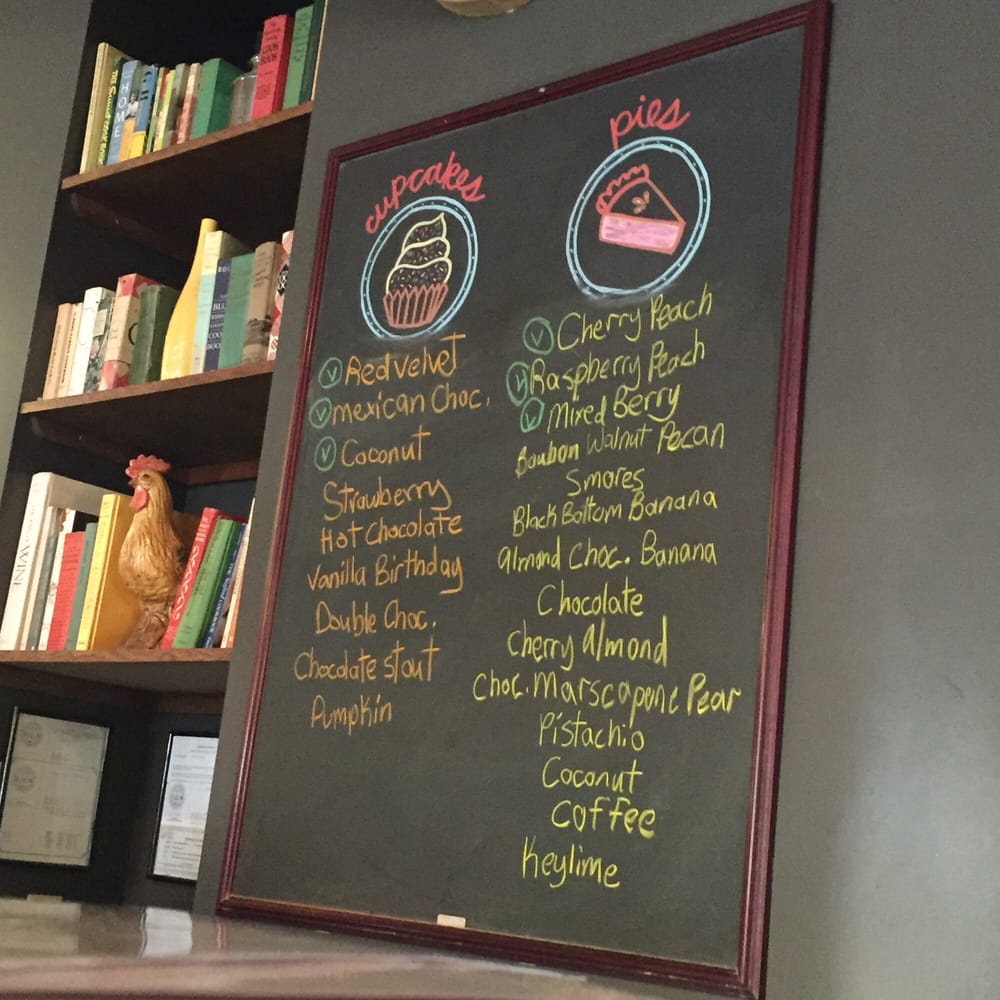 cupcakes
V Red velvet
V mexican Choc.
V Coconut
Strawberry
Hot Chocolate
Vanilla Birthday
Double Choc.
Chocolate stout
Pumpkin
pies
V Cherry Peach
V Raspberry Peach
V Mixed Berry
Boubon Walnut Pecan
Smores
Black Bottom Banana
almond Choc. Banana
Chocolate
Cherry almond
Choc. Marscapone Pear
Pistachio
Coconut
Coffee
Keylime
HOME
COOK
BOOK
WINE